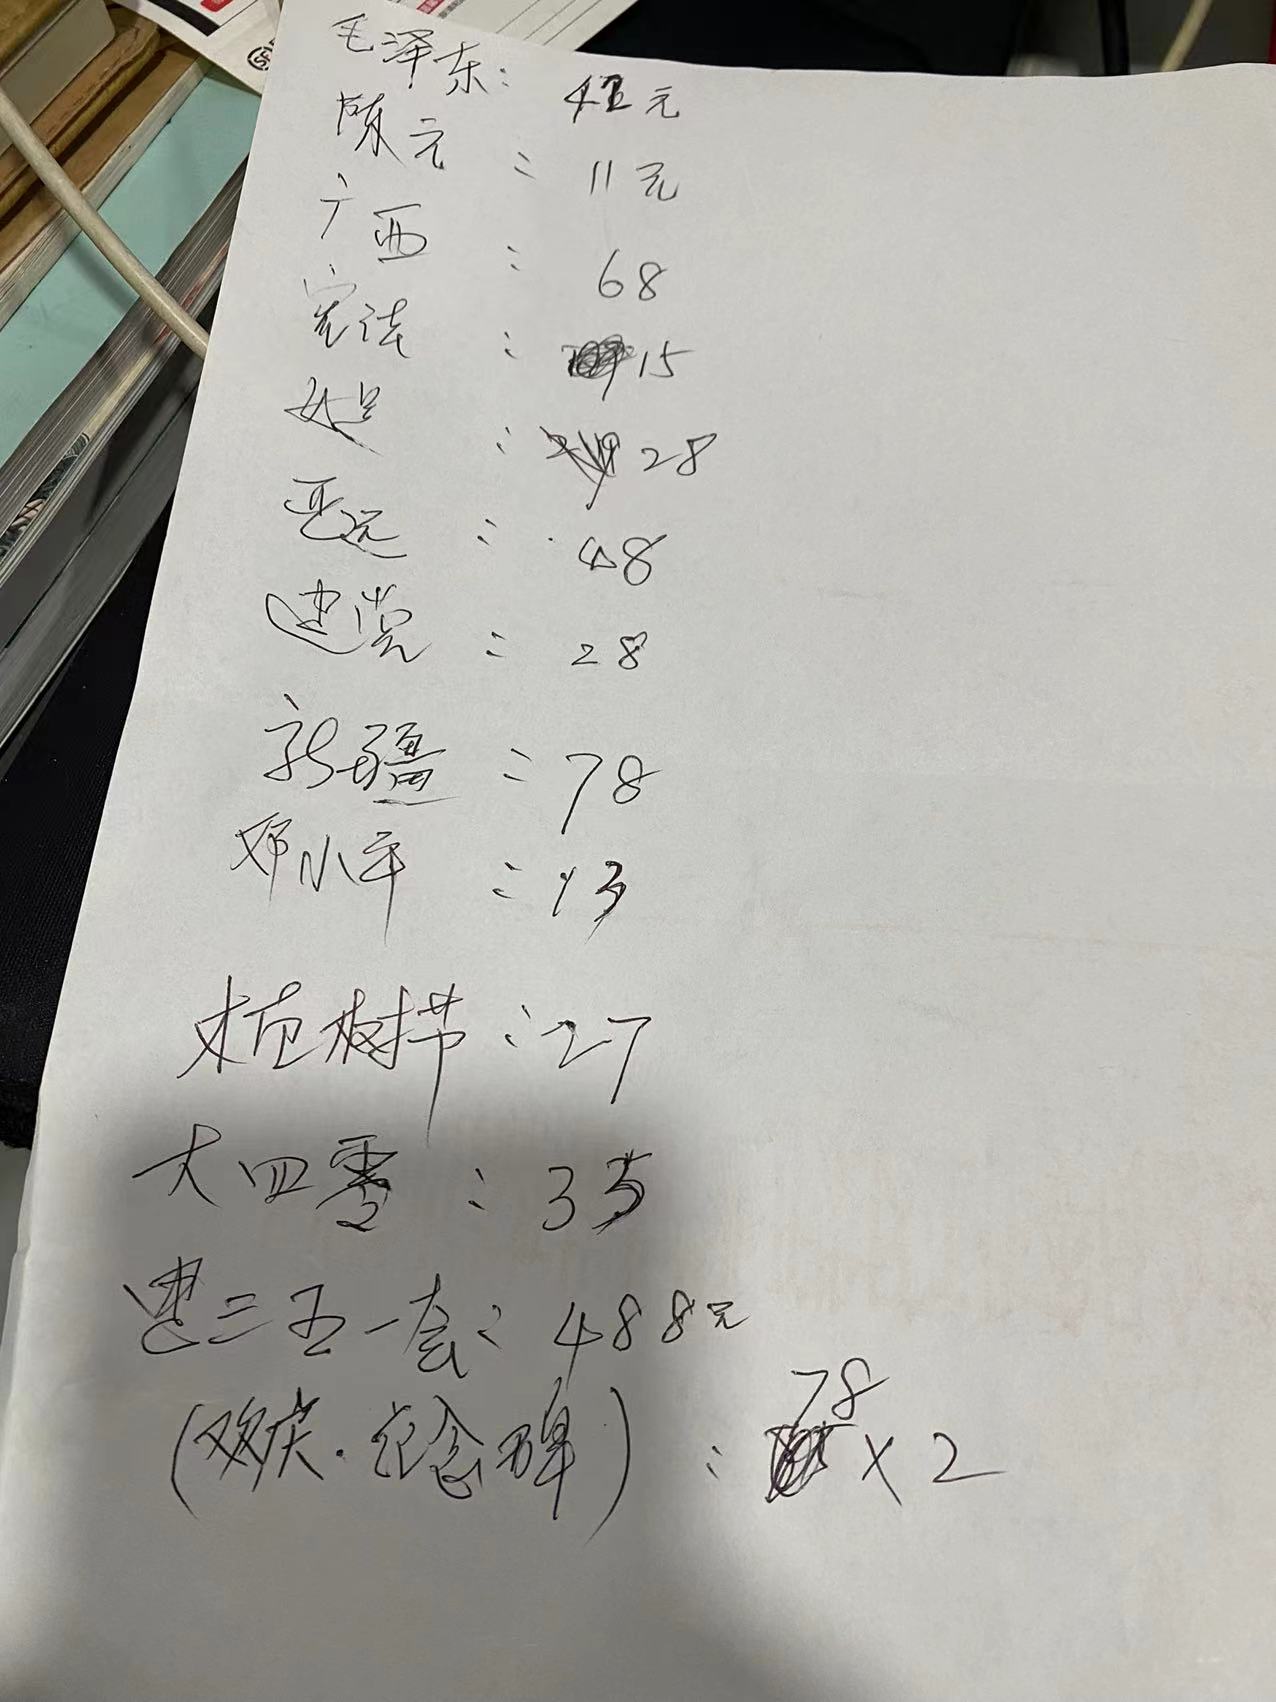 毛泽东: 42元
陈云: 11元
广西: 68
宪法: 15
女足: 28
亚运: 48
建党: 28
新疆: 78
邓小平: 13
植树节: 27
大四零: 35
三五一套: 488元
78
(欢庆.纪念碑): ×2